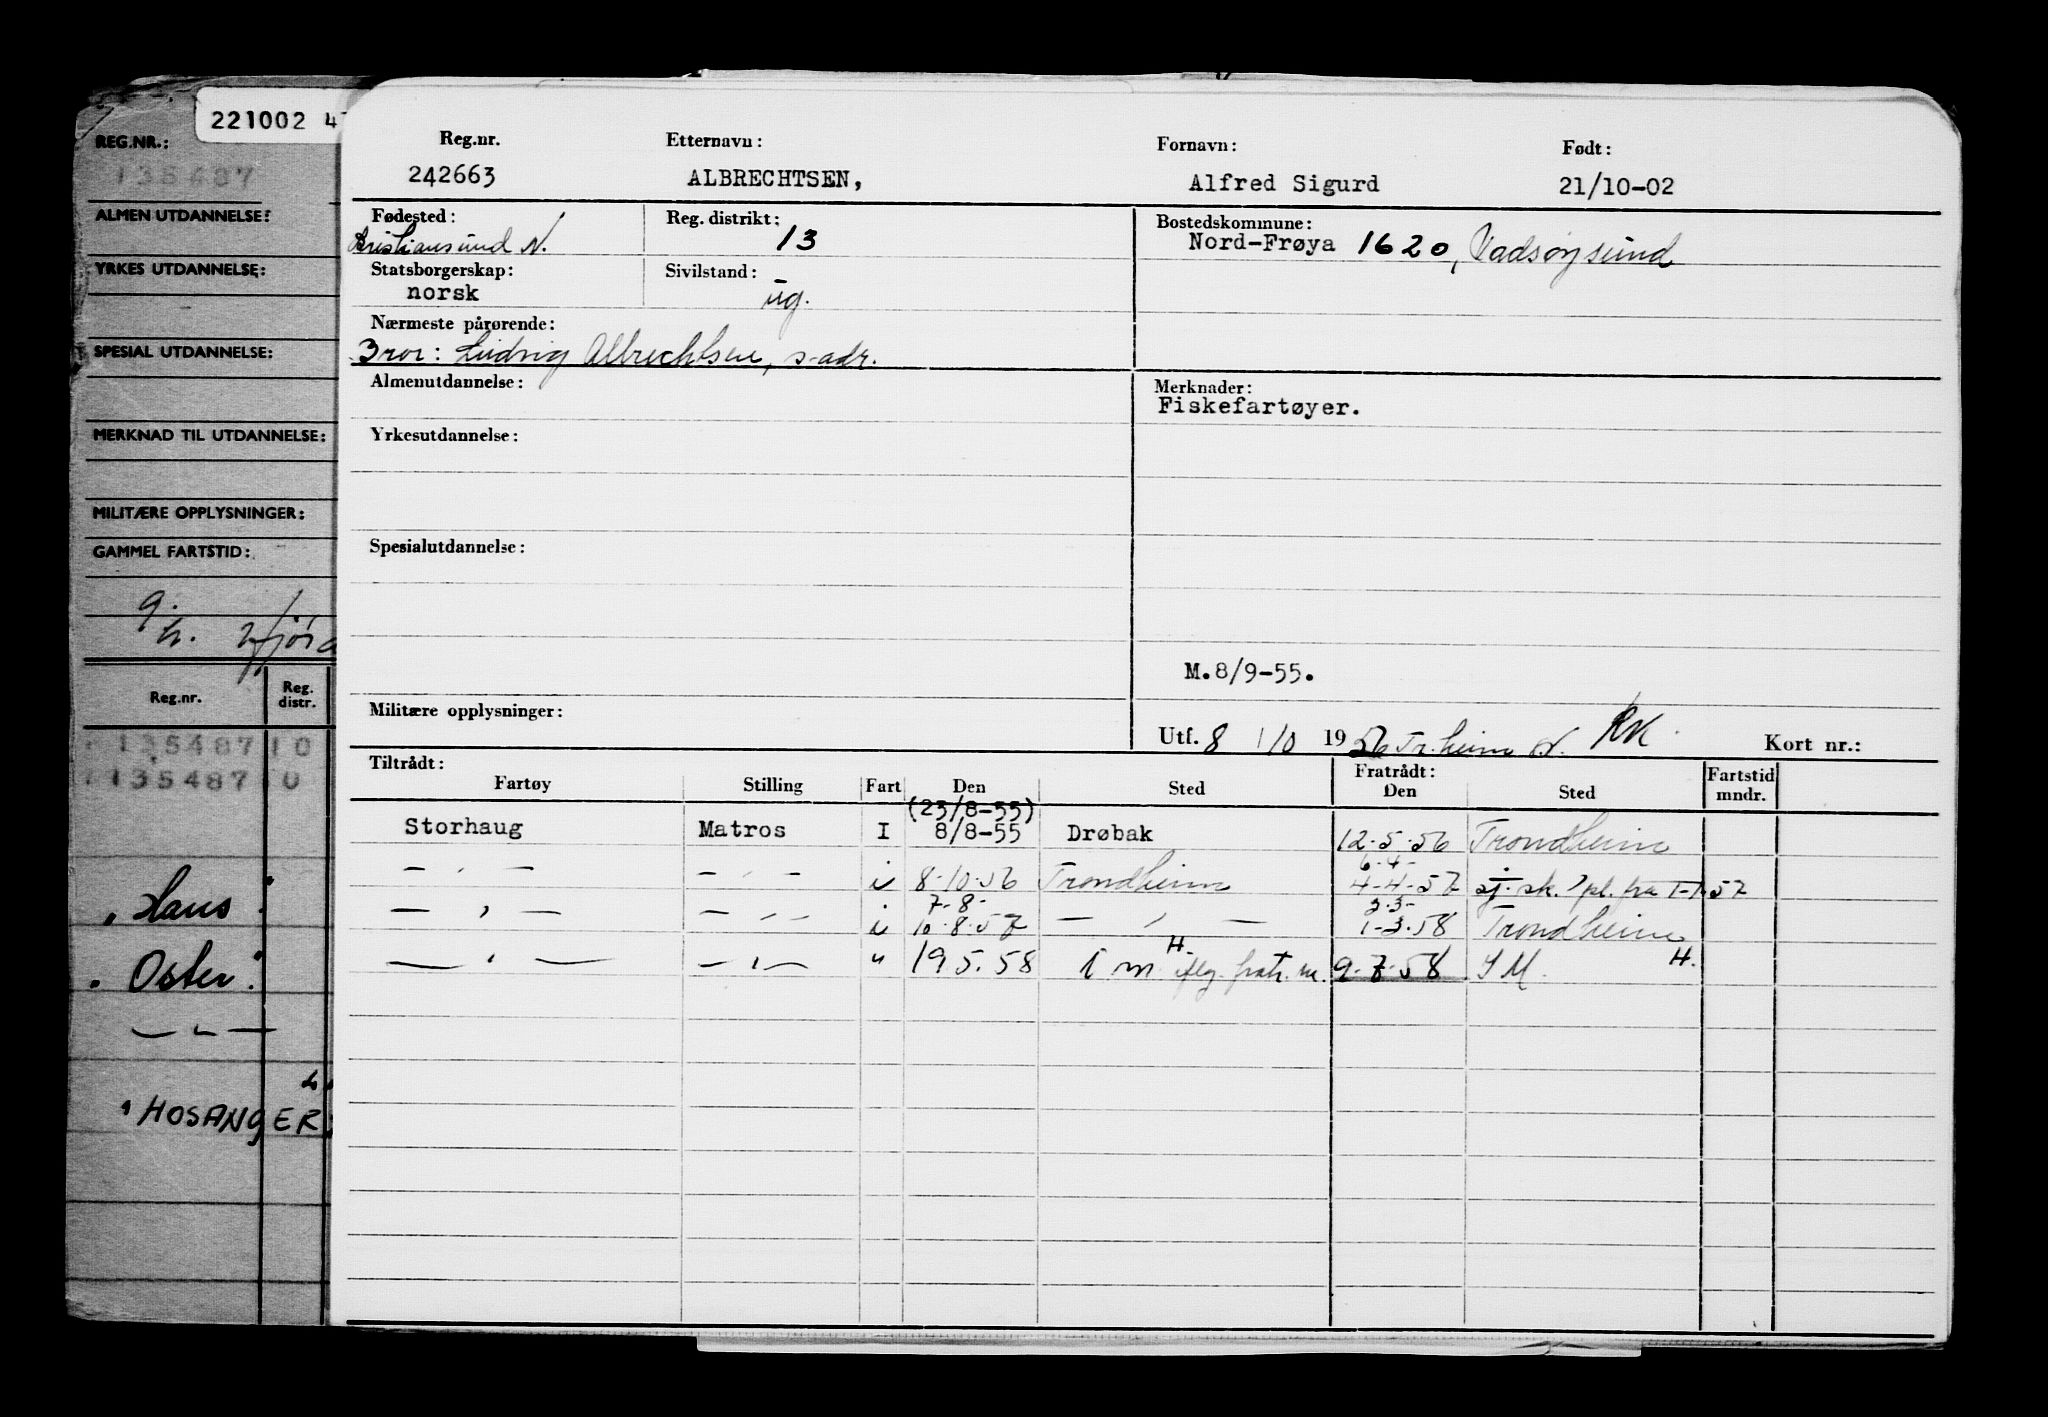 221002
REG.NR.:
135487
ALMEN UTDANNELSE:
YRKES UTDANNELSE:
SPESIAL UTDANNELSE:
MERKNAD TIL UTDANNELSE:
MILITÆRE OPPLYSNINGER:
GAMMEL FARTSTID:
Reg.nr. Reg. distr.
135487 10
135487 10
„Haus"
„Oster".
— „ —
"HOSANGER"
Reg.nr. Etternavn: Fornavn: Født:
242663 ALBRECHTSEN, Alfred Sigurd 21/10-02
Fødested: Reg. distrikt: Bostedskommune:
Kristiansund N. 13 Nord-Frøya 1620, Vadsøysund
Statsborgerskap: Sivilstand:
norsk ug.
Nærmeste pårørende:
Bror: Ludvig Albrechtsen, s-adr.
Almenutdannelse: Merknader:
Fiskefartøyer.
Yrkesutdannelse:
Spesialutdannelse:
M.8/9-55.
Militære opplysninger:
Utf. 8/10 1956 Tr.heim N. RK Kort nr.:
Tiltrådt: Fratrådt: Fartstid mndr.
Fartøy Stilling Fart Den Sted Den Sted
(23/8-55)
Storhaug Matros I 8/8-55 Drøbak 12-5-56 Trondheim
6-4-
— „ — — „ — i 8-10-56 Trondheim 4-4-57 sj. sk. pl. fra 1-1-57
7-8- 3-3-
— „ — — „ — i 10-8-57 — „ — 1-3-58 Trondheim
— „ — — „ — " 19.5.58 i m. H. flg. fratr. m. 9-7-58 SM. H.